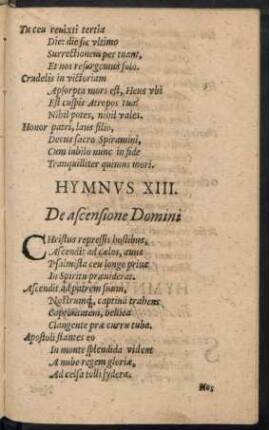 Tu ceu reuixti tertia
Die: die sic vltimo
Surrectionem per tuam,
Et nos resurgemus solo.
Crudelis in victoriam
Absorpta mors est, Heus vbi
Est cuspis Atropos tua?
Nihil potes, nihil vales.
Honor patri, laus filio,
Decus sacro Spiramini,
Cum iubilo nunc in fide
Tranquilliter quimus mori.
HYMNVS XIII.
De ascensione Domini
CHristus repressis hostibus,
Ascendit ad cælos, cane
Psalmista ceu longe prius
In Spiritu præuiderat.
Ascendit ad patrem suum,
Nostrumq́, captiua trahens
Captiuitatem, bellica
Clangente præ curru tuba.
Apostoli stantes eo
In monte splendida vident
A nube regem gloriæ,
Ad celsa tolli sydera.